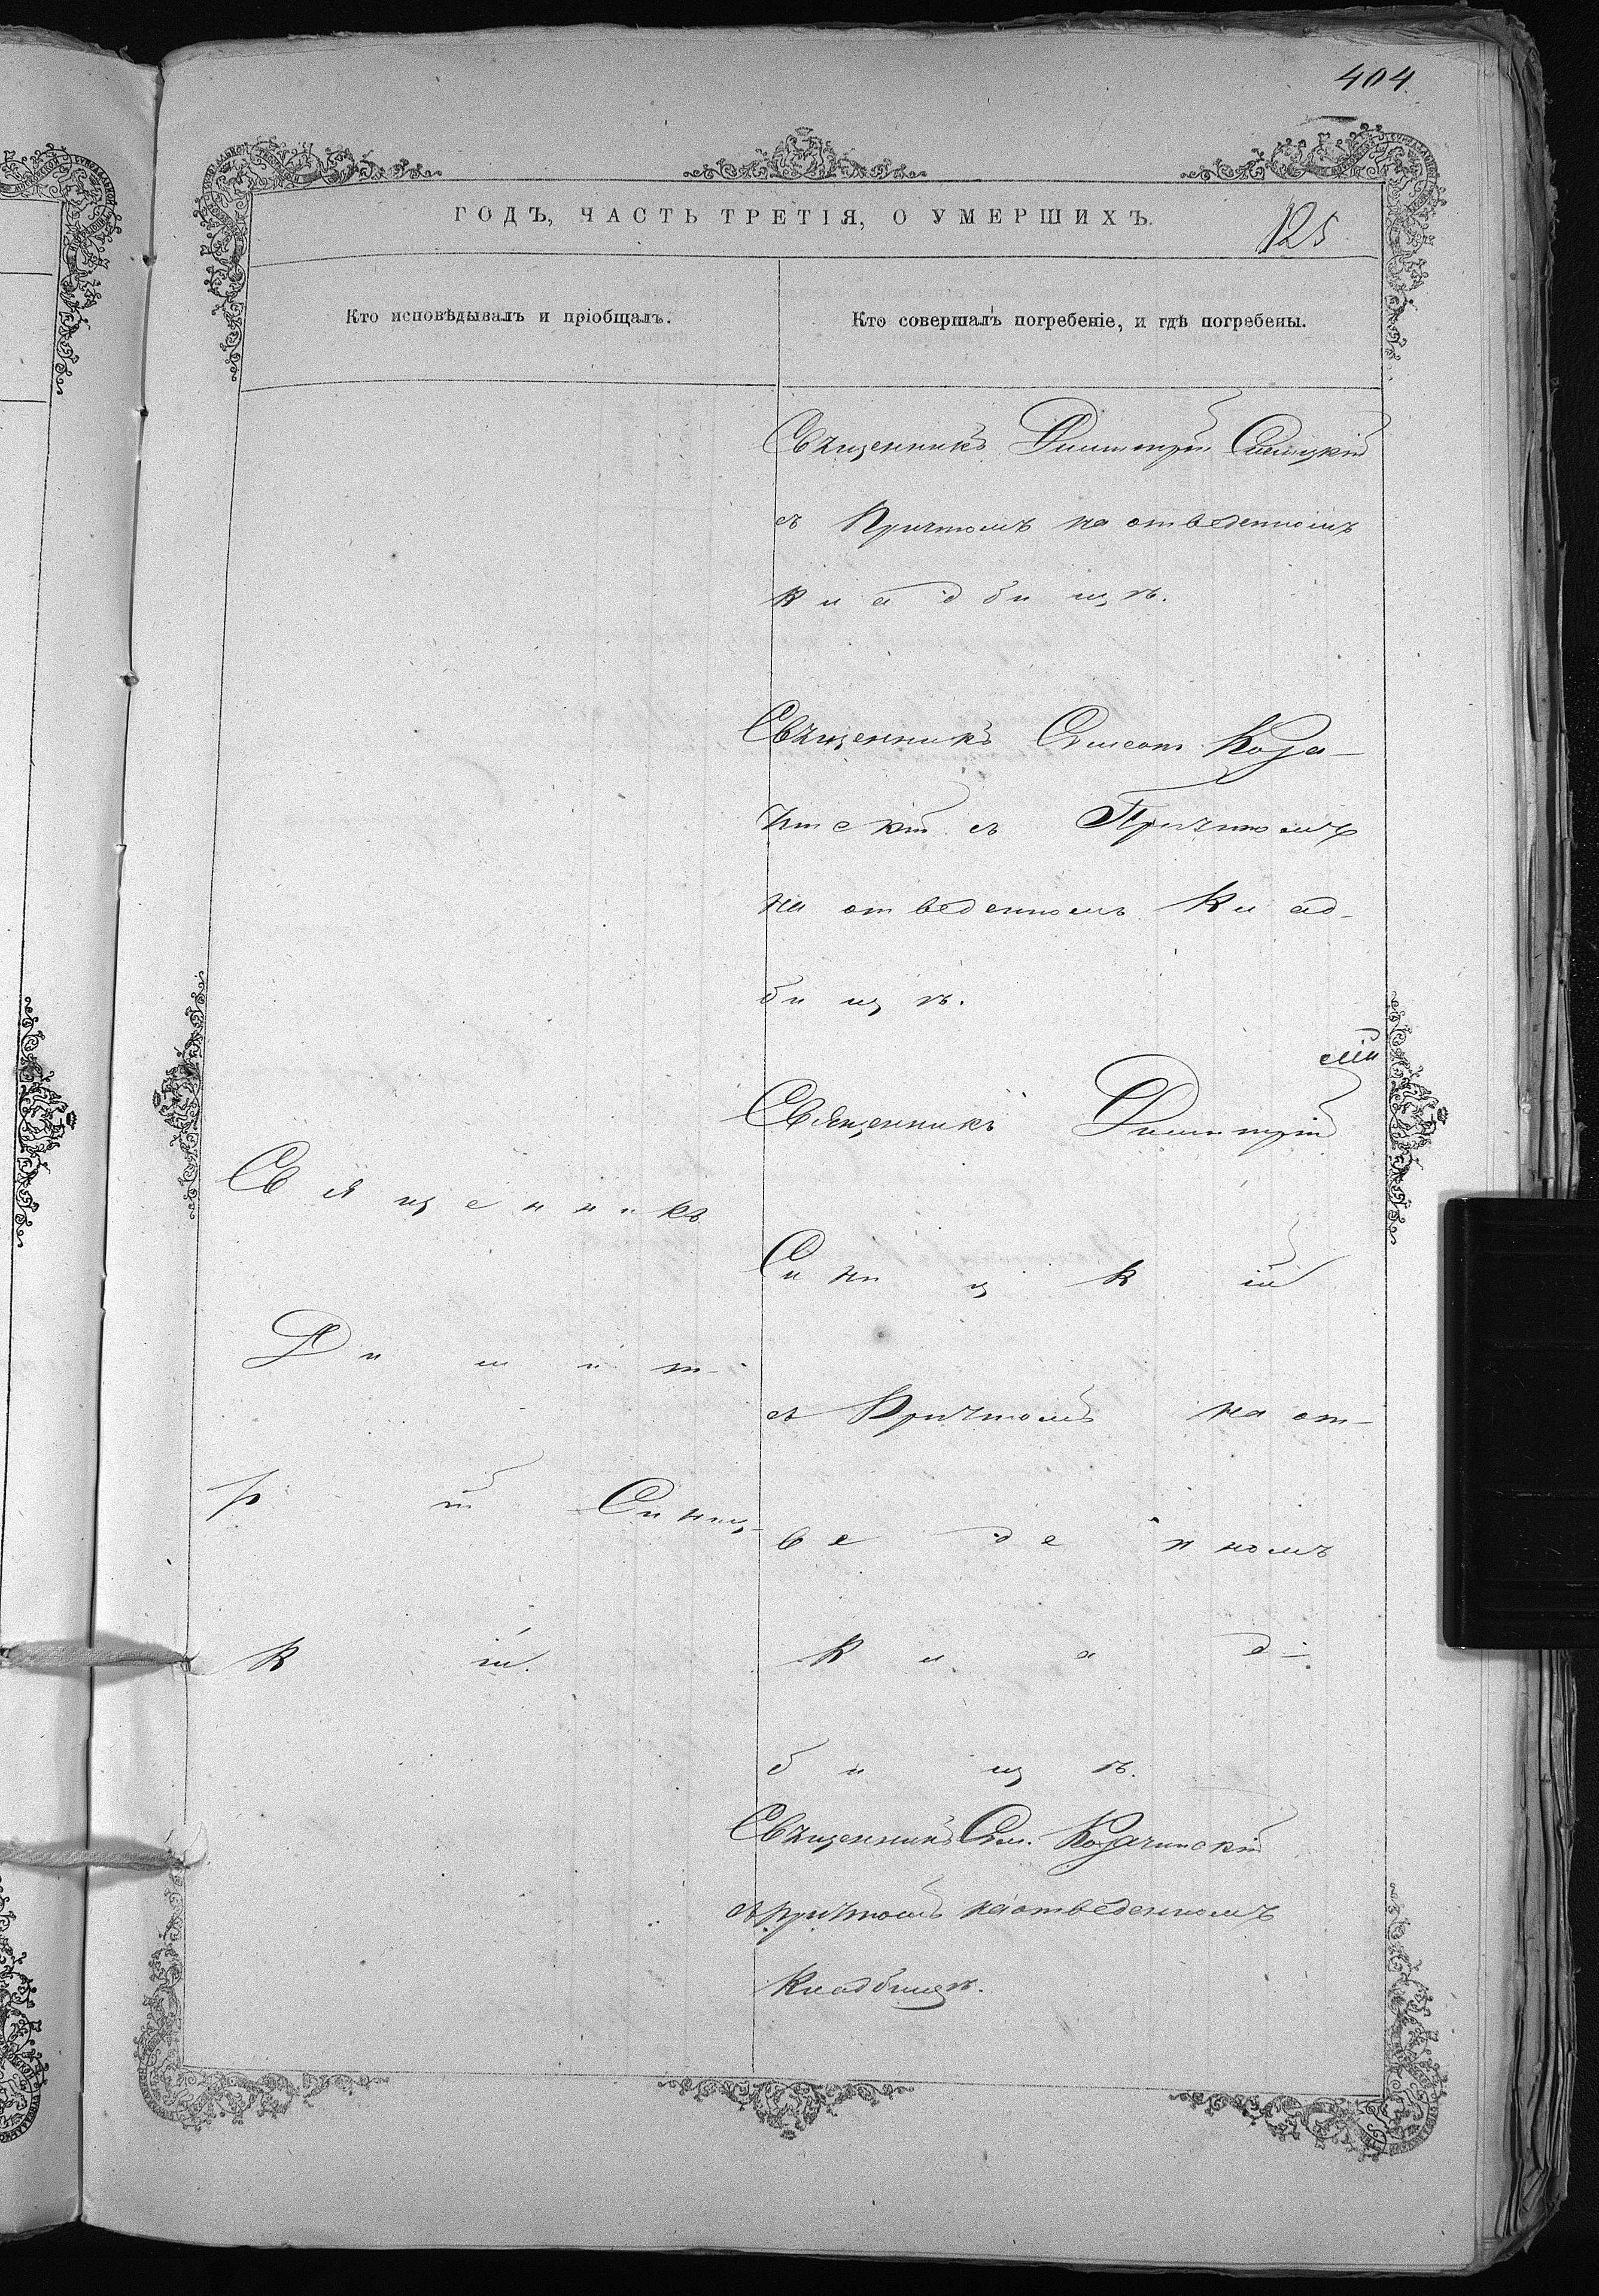 404
ГОДЪ, ЧАСТЬ ТРЕТІЯ, О УМЕРШИХЪ.
125
Кто исповѣдывалъ и пріобщалъ.
Кто совершалъ погребеніе, и гдѣ погребены.
Священникъ Димитрій Синицкій
съ Причтомъ на отведенномъ
кладбищѣ.
Священникъ Симеонъ Коза-
чинскій съ Причтомъ
на отведенномъ клад-
бищѣ.
Священникъ Димитрій
Синицкій
съ Причтомъ на от-
веденномъ
клад-
бищѣ.
Священникъ
Димит-
рій Синиц-
кій.
Священникъ Сим. Козачинскій
съ причтомъ на отведенномъ
кладбищѣ.